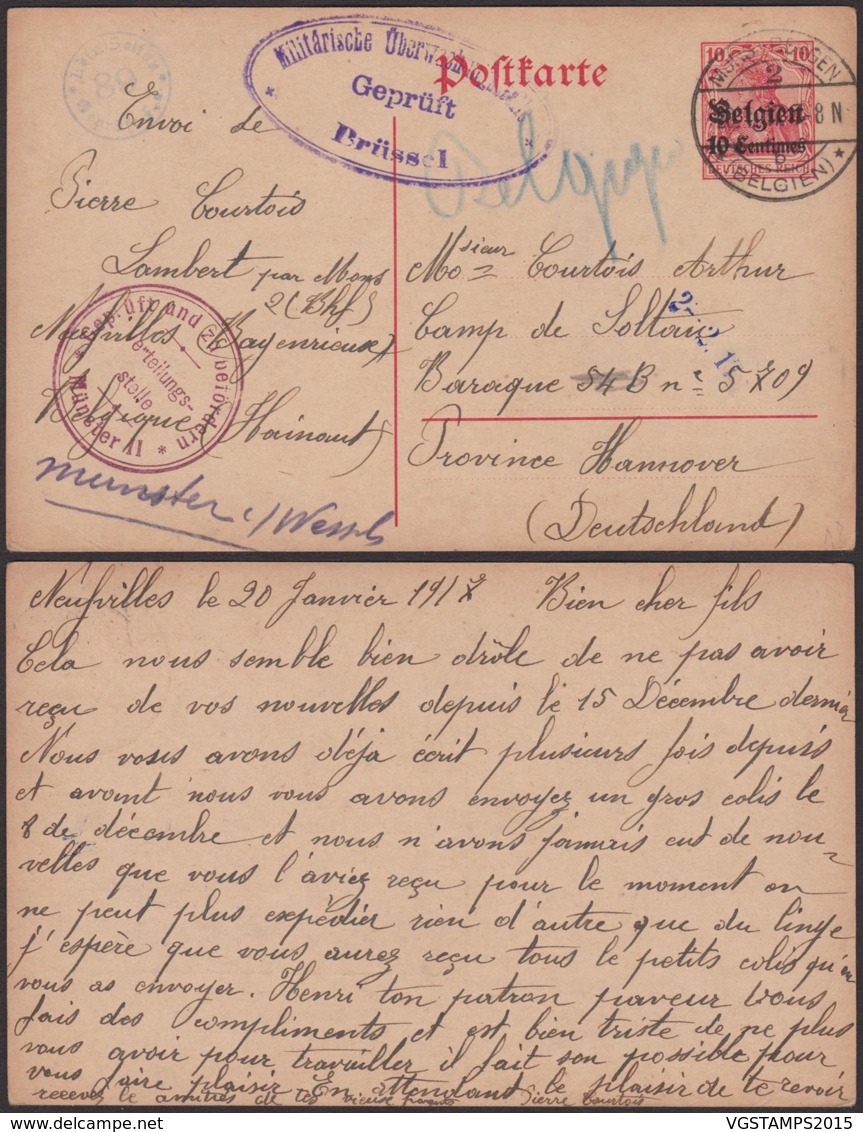 Militärische Überwachungsstelle
Geprüft
Brüssel
Postkarte
10 10
Belgien
10 Centimes
DEUTSCHES REICH
2
8 N
(BELGIEN)
89
Envoi de
Pierre Courtois
Lambert par Mons
2 (Bhf)
Neufvilles
Belgique (Hainaut)
Belgique
Mosieur Courtois Arthur
Camp de Soltau
Baraque 54 B nr 5709
Province Hannover
(Deutschland)
Geprüft und zu befördern
erteilungs-
stelle
Münster II
munster i/Wessf
Neufvilles le 20 Janvier 1917 Bien cher fils
Cela nous semble bien drôle de ne pas avoir
reçu de vos nouvelles depuis le 15 Décembre dernier
Nous voses avons déjà écrit plusieurs fois depuis
et avant nous vous avons envoyez un gros colis le
8 de décembre et nous n'avons jamais eut de nou-
velles que vous l'aviez reçu pour le moment on
ne peut plus expédier rien d'autre que du linge
j'espère que vous aurez reçu tous le petits colis qu'on
vous as envoyer. Henri ton patron paveur vous
fais des compliments et est bien triste de ne plus
vous avoir pour travailler il fait son possible pour
vous faire plaisir En attendant le plaisir de te revoir
recevez le amitiés de tes vieux parents Pierre Courtois
VGSTAMPS2015